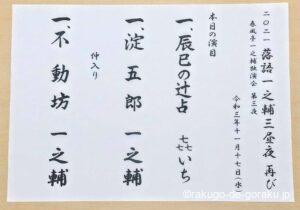 二〇二一 落語一之輔三昼夜 再び
春風亭一之輔独演会 第三夜
令和三年十一月十七日(水)
本日の演目
一、辰巳の辻占 㐂いち
一、淀五郎 一之輔
仲入り
一、不動坊 一之輔
©rakugo-de-goraku.jp